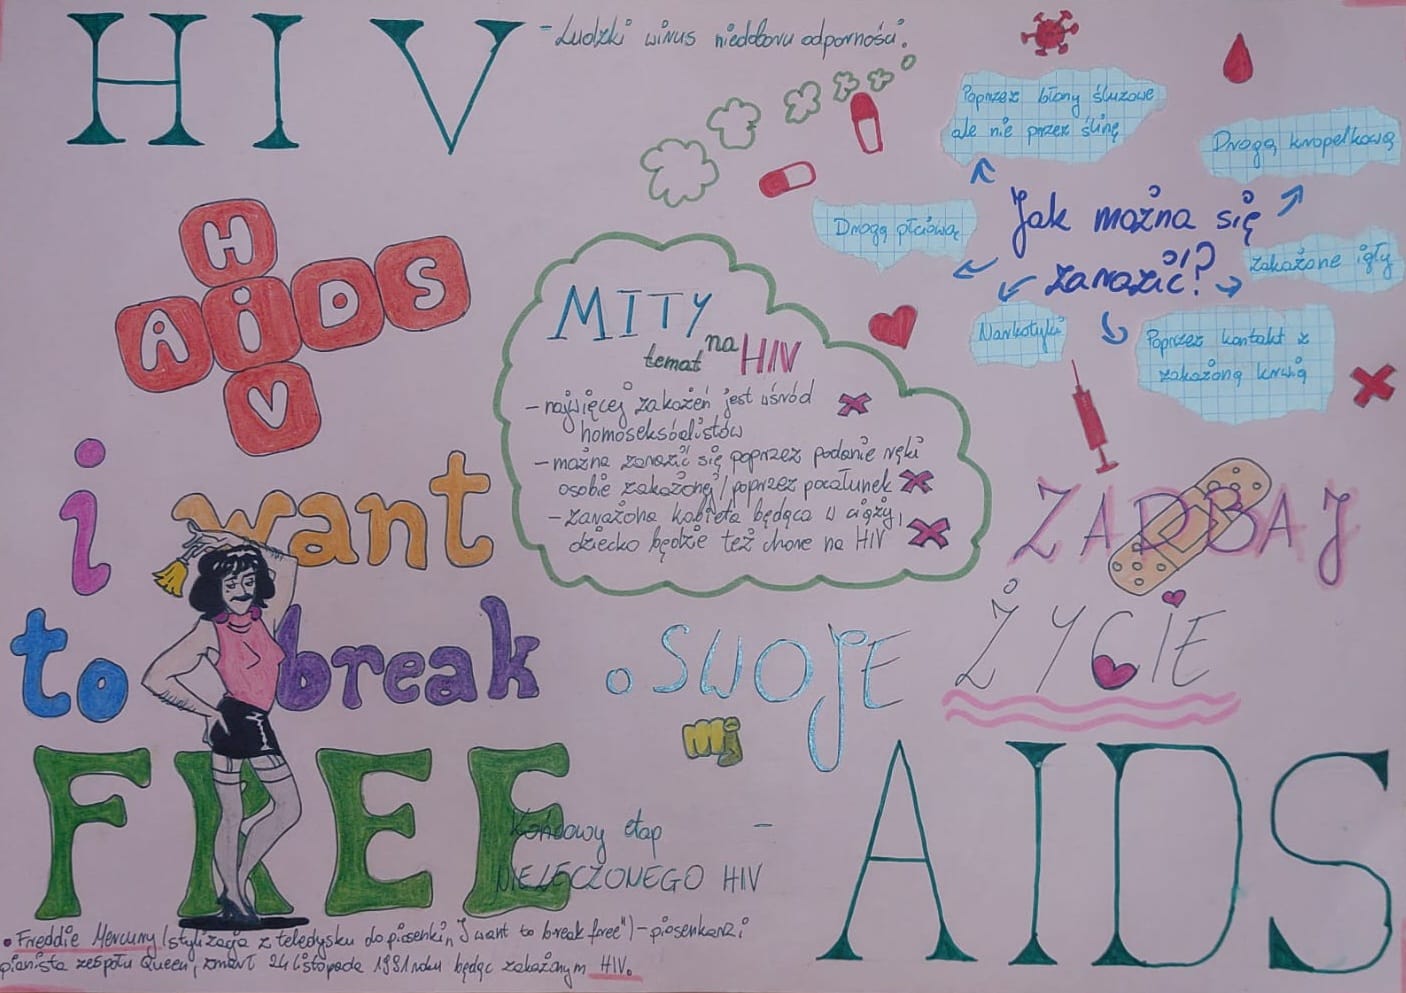 HIV - Ludzki wirus niedoboru odporności.
Poprzez błony śluzowe
ale nie przez ślinę
Drogą kropelkową
Drogą płciową
Jak można się
zarazić?
zakażone igły
Narkotyki
Poprzez kontakt z
zakażoną krwią
HIV
AIDS
MITY
na
temat HIV
- najwięcej zakażeń jest wśród
homoseksóalistów
- można zarazić się poprzez podanie ręki
osobie zakażonej / poprzez pocałunek
- zarażona kobieta będąca w ciąży,
dziecko będzie też chore na HIV
i want
to break
FREE
ZADBAJ
o SWOJE ŻYCIE
Końcowy etap -
NIELECZONEGO HIV
AIDS
• Freddie Mercury (stylizacja z teledysku do piosenki „I want to break free") - piosenkarz i
pianista zespołu Queen, zmarł 24 listopada 1981 roku będąc zakażonym HIV.